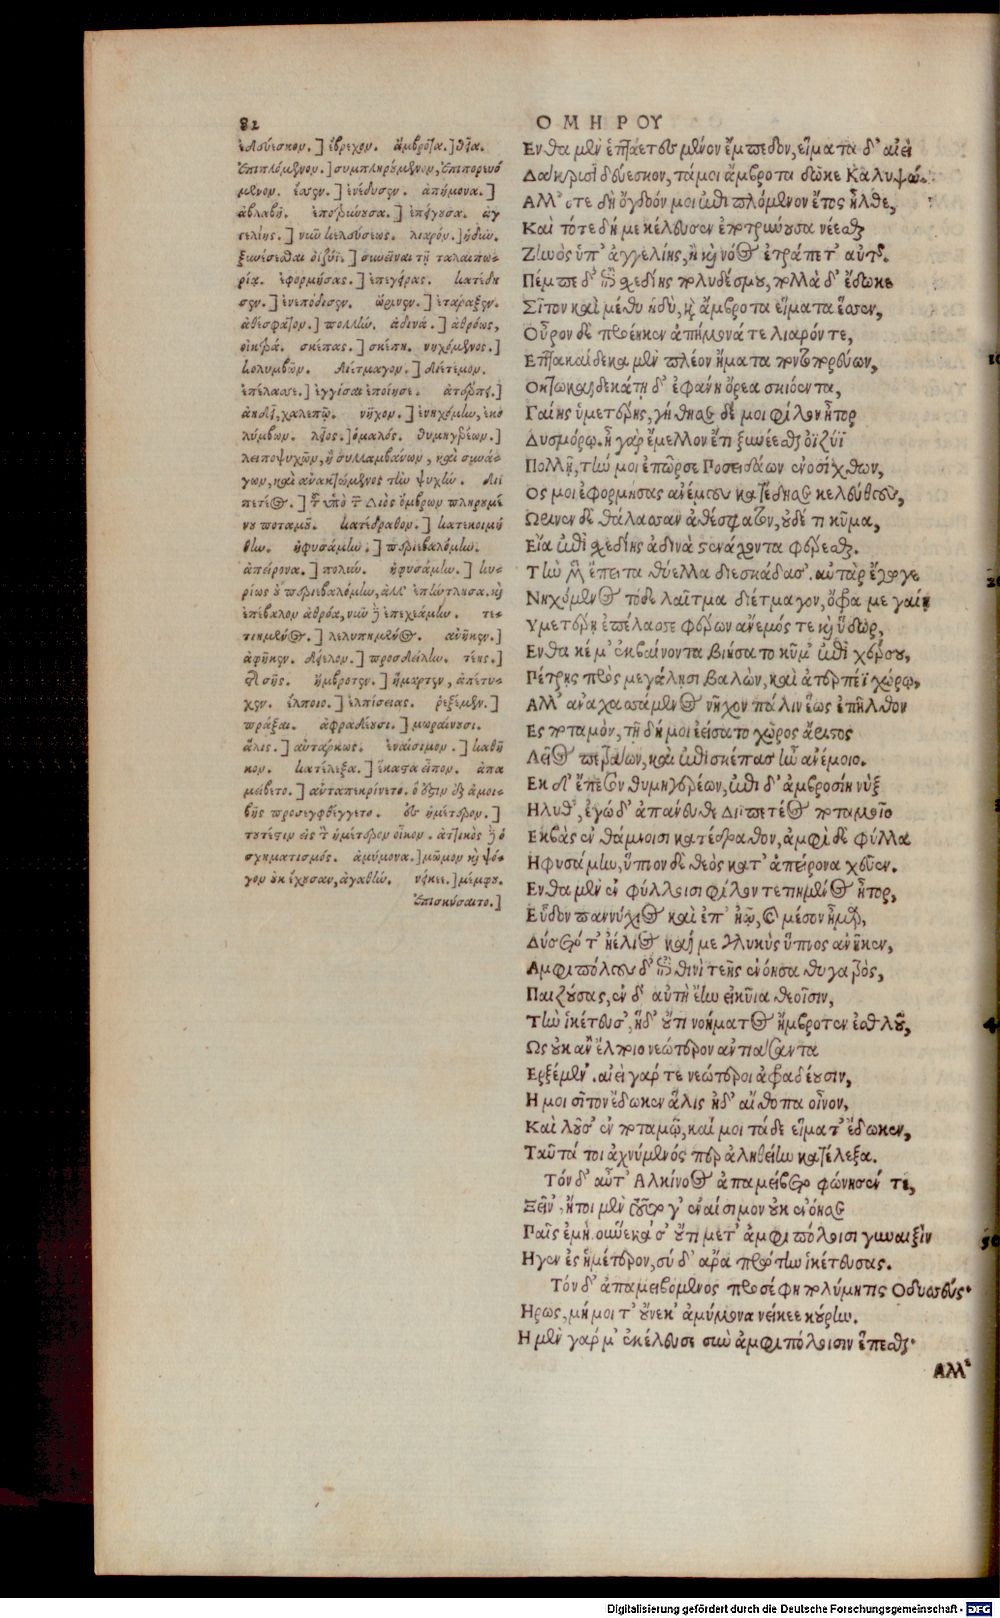 82
ΟΜΗΡΟΥ
ἐδεύεσκον.] ἔβρεχον. ἄμβροτα.] θεῖα.
ἐπιπλόμενον.] συμπληρούμενον, ἐπιπορευό
μενον. ἕσσεν.] ἐνέδυσεν. ἀπήμονα.]
ἀβλαβῆ. ἐποτρύνουσα.] ἐπείγουσα. ἀγ
γελίης.] νῦν κελεύσεως. λιαρόν.] ἡδύν.
ξυνέσεσθαι ὀϊζύϊ.] συνεῖναι τῇ ταλαιπω-
ρίᾳ. ἐφορμήσας.] ἐπεγείρας. κατέδη
σεν.] ἐνεπόδισεν. ὤρινεν.] ἐτάραξεν.
ἀθέσφατον.] πολλὴν. ἀδινά.] ἀθρόως,
οἰκτρά. σκέπας.] σκέπη. νηχόμενος.]
κολυμβῶν. διέτμαγον.] διέτεμον.
ἐπέλασσε.] ἐγγίσαι ἐποίησε. ἀτερπεῖ.]
ἀηδεῖ, χαλεπῷ. νῆχον.] ἐνηχόμην, ἐκο
λύμβων. λεῖος.] ὁμαλός. θυμηγερέων.]
λειποψυχῶν, ἢ συλλαμβάνων, καὶ συνά-
γων, καὶ ἀνακτώμενος τὴν ψυχήν. διι
πετέος.] τοῦ ὑπὸ τοῦ Διὸς ὄμβρων πληρουμέ
νου ποταμοῦ. κατέδραθον.] κατεκοιμή
θην. ἠφυσάμην.] περιεβαλόμην.
ἀπείρονα.] πολύν. ἠφυσάμην.] κυ-
ρίως οὐ περιεβαλόμην, ἀλλ' ἐπήντλησα. καὶ
ἐπέβαλον ἀθρόα, νῦν δὲ ἐπεχεάμην. τε-
τιημένος.] λελυπημένος. ἀνῆκεν.]
ἀφῆκεν. δείελον.] προσδείλην. τεῆς.]
τῆς σῆς. ἤμβροτεν.] ἥμαρτεν, ἀπέτυ-
χεν. ἔλποιο.] ἐλπίσειας. ἐρξέμεν.]
πρᾶξαι. ἀφραδέουσι.] μωραίνουσι.
ἅλις.] αὐτάρκως. ἐναίσιμον.] καθῆ
κον. κατέλεξα.] ἕκαστα εἶπον. ἀπα
μείβετο.] ἀνταπεκρίνετο. ὅ ἐστιν ἐξ ἀμοι-
βῆς προσεφθέγγετο. ἐς ἡμέτερον.]
τουτέστιν εἰς τὸν ἡμέτερον οἶκον. ἀττικὸς δὲ ὁ
σχηματισμός. ἀμύμονα.] μῶμον καὶ ψό-
γον οὐκ ἔχουσαν, ἀγαθήν. νείκεε.] μέμφου.
ἐπισκύσαιτο.]
Ενθα μὲν ἑπτάετες μένον ἔμπεδον, εἵματα δ' αἰεὶ
Δάκρυσι δεύεσκον, τά μοι ἄμβροτα δῶκε Καλυψώ.
Αλλ' ὅτε δὴ ὄγδοόν μοι ἐπιπλόμενον ἔτος ἦλθε,
Καὶ τότε δή με κέλευσεν ἐποτρύνουσα νέεσθαι
Ζηνὸς ὑπ' ἀγγελίης, ἢ καὶ νόος ἐτράπετ' αὐτῆς.
Πέμπε δ' ἐπὶ σχεδίης πολυδέσμου, πολλὰ δ' ἔδωκε
Σῖτον καὶ μέθυ ἡδὺ, καὶ ἄμβροτα εἵματα ἕσσεν,
Οὖρον δὲ προέηκεν ἀπήμονά τε λιαρόν τε,
Επτακαίδεκα μὲν πλέον ἤματα ποντοπορεύων,
Οκτωκαιδεκάτῃ δ' ἐφάνη ὄρεα σκιόεντα,
Γαίης ὑμετέρης, γήθησε δέ μοι φίλον ἦτορ
Δυσμόρῳ. ἦ γὰρ ἔμελλον ἔτι ξυνέσεσθαι ὀϊζύϊ
Πολλῇ, τήν μοι ἐπῶρσε Ποσειδάων ἐνοσίχθων,
Ος μοι ἐφορμήσας ἀνέμους κατέδησε κελεύθους,
Ωρινεν δὲ θάλασσαν ἀθέσφατον, οὐδέ τι κῦμα,
Εἴα ἐπὶ σχεδίης ἀδινὰ στενάχοντα φέρεσθαι.
Τὴν μὲν ἔπειτα θύελλα διεσκέδασ'. αὐτὰρ ἔγωγε
Νηχόμενος τόδε λαῖτμα διέτμαγον, ὄφρα με γαίῃ
Υμετέρῃ ἐπέλασσε φέρων ἄνεμός τε καὶ ὕδωρ,
Ενθα κέ μ' ἐκβαίνοντα βιήσατο κῦμ' ἐπὶ χέρσου,
Πέτρῃς πρὸς μεγάλῃσι βαλὼν, καὶ ἀτερπέϊ χώρῳ,
Αλλ' ἀναχασσάμενος νῆχον πάλιν ἕως ἐπῆλθον
Ες ποταμὸν, τῇ δή μοι ἐείσατο χῶρος ἄριστος
Λεῖος πετράων, καὶ ἐπὶ σκέπας ἦν ἀνέμοιο.
Εκ δ' ἔπεσον θυμηγερέων, ἐπὶ δ' ἀμβροσίη νὺξ
Ηλυθ', ἐγὼ δ' ἀπάνευθε Διιπετέος ποταμοῖο
Εκβὰς ἐν θάμνοισι κατέδραθον, ἀμφὶ δὲ φύλλα
Ηφυσάμην, ὕπνον δὲ θεὸς κατ' ἀπείρονα χεῦεν.
Ενθα μὲν ἐν φύλλοισι φίλον τετιημένος ἦτορ,
Εὗδον παννύχιος καὶ ἐπ' ἠῶ, καὶ μέσον ἦμαρ,
Δύσετό τ' ἠέλιος καί με γλυκὺς ὕπνος ἀνῆκεν,
Αμφιπόλους δ' ἐπὶ θινὶ τεῆς ἐνόησα θυγατρὸς,
Παιζούσας, ἐν δ' αὐτὴ ἔην εἰκυῖα θεοῖσιν,
Τὴν ἱκέτευσ', ἡ δ' οὔτι νοήματος ἤμβροτεν ἐσθλοῦ,
Ως οὐκ ἂν ἔλποιο νεώτερον ἀντιάσαντα
Ερξέμεν. αἰεὶ γάρ τε νεώτεροι ἀφραδέουσιν,
Η μοι σῖτον ἔδωκεν ἅλις ἠδ' αἴθοπα οἶνον,
Καὶ λοῦσ' ἐν ποταμῷ, καί μοι τάδε εἵματ' ἔδωκεν,
Ταῦτά τοι ἀχνύμενός περ ἀληθείην κατέλεξα.
Τόν δ' αὖτ' Αλκίνοος ἀπαμείβετο φώνησέν τε,
Ξεῖν', ἤτοι μὲν τοῦτό γ' ἐναίσιμον οὐκ ἐνόησε
Παῖς ἐμή. οὕνεκά σ' οὔτι μετ' ἀμφιπόλοισι γυναιξὶν
Ηγεν ἐς ἡμέτερον, σὺ δ' ἄρα πρώτην ἱκέτευσας.
Τόν δ' ἀπαμειβόμενος προσέφη πολύμητις Οδυσσεύς·
Ηρως, μή μοι τ' οὕνεκ' ἀμύμονα νείκεε κούρην.
Η μὲν γάρ μ' ἐκέλευσε σὺν ἀμφιπόλοισιν ἕπεσθαι·
Αλλ'
Digitalisierung gefördert durch die Deutsche Forschungsgemeinschaft - DFG